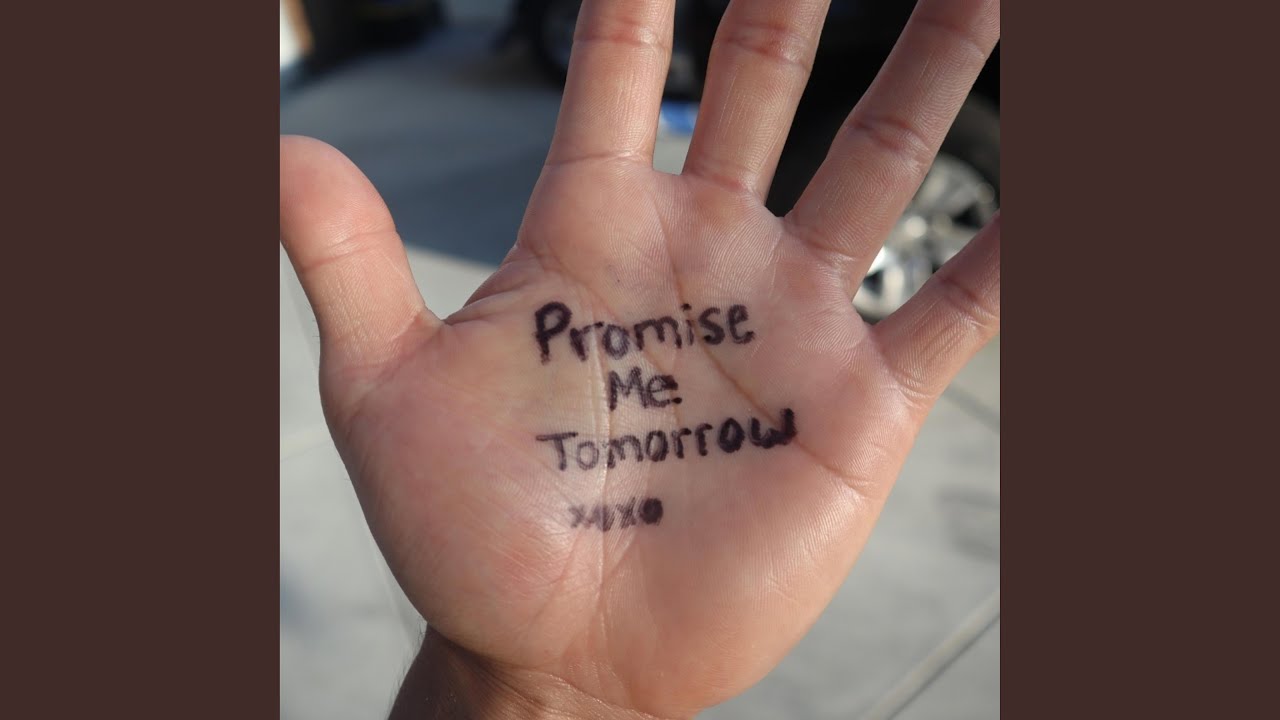 Promise
Me
Tomorrow
xoxo